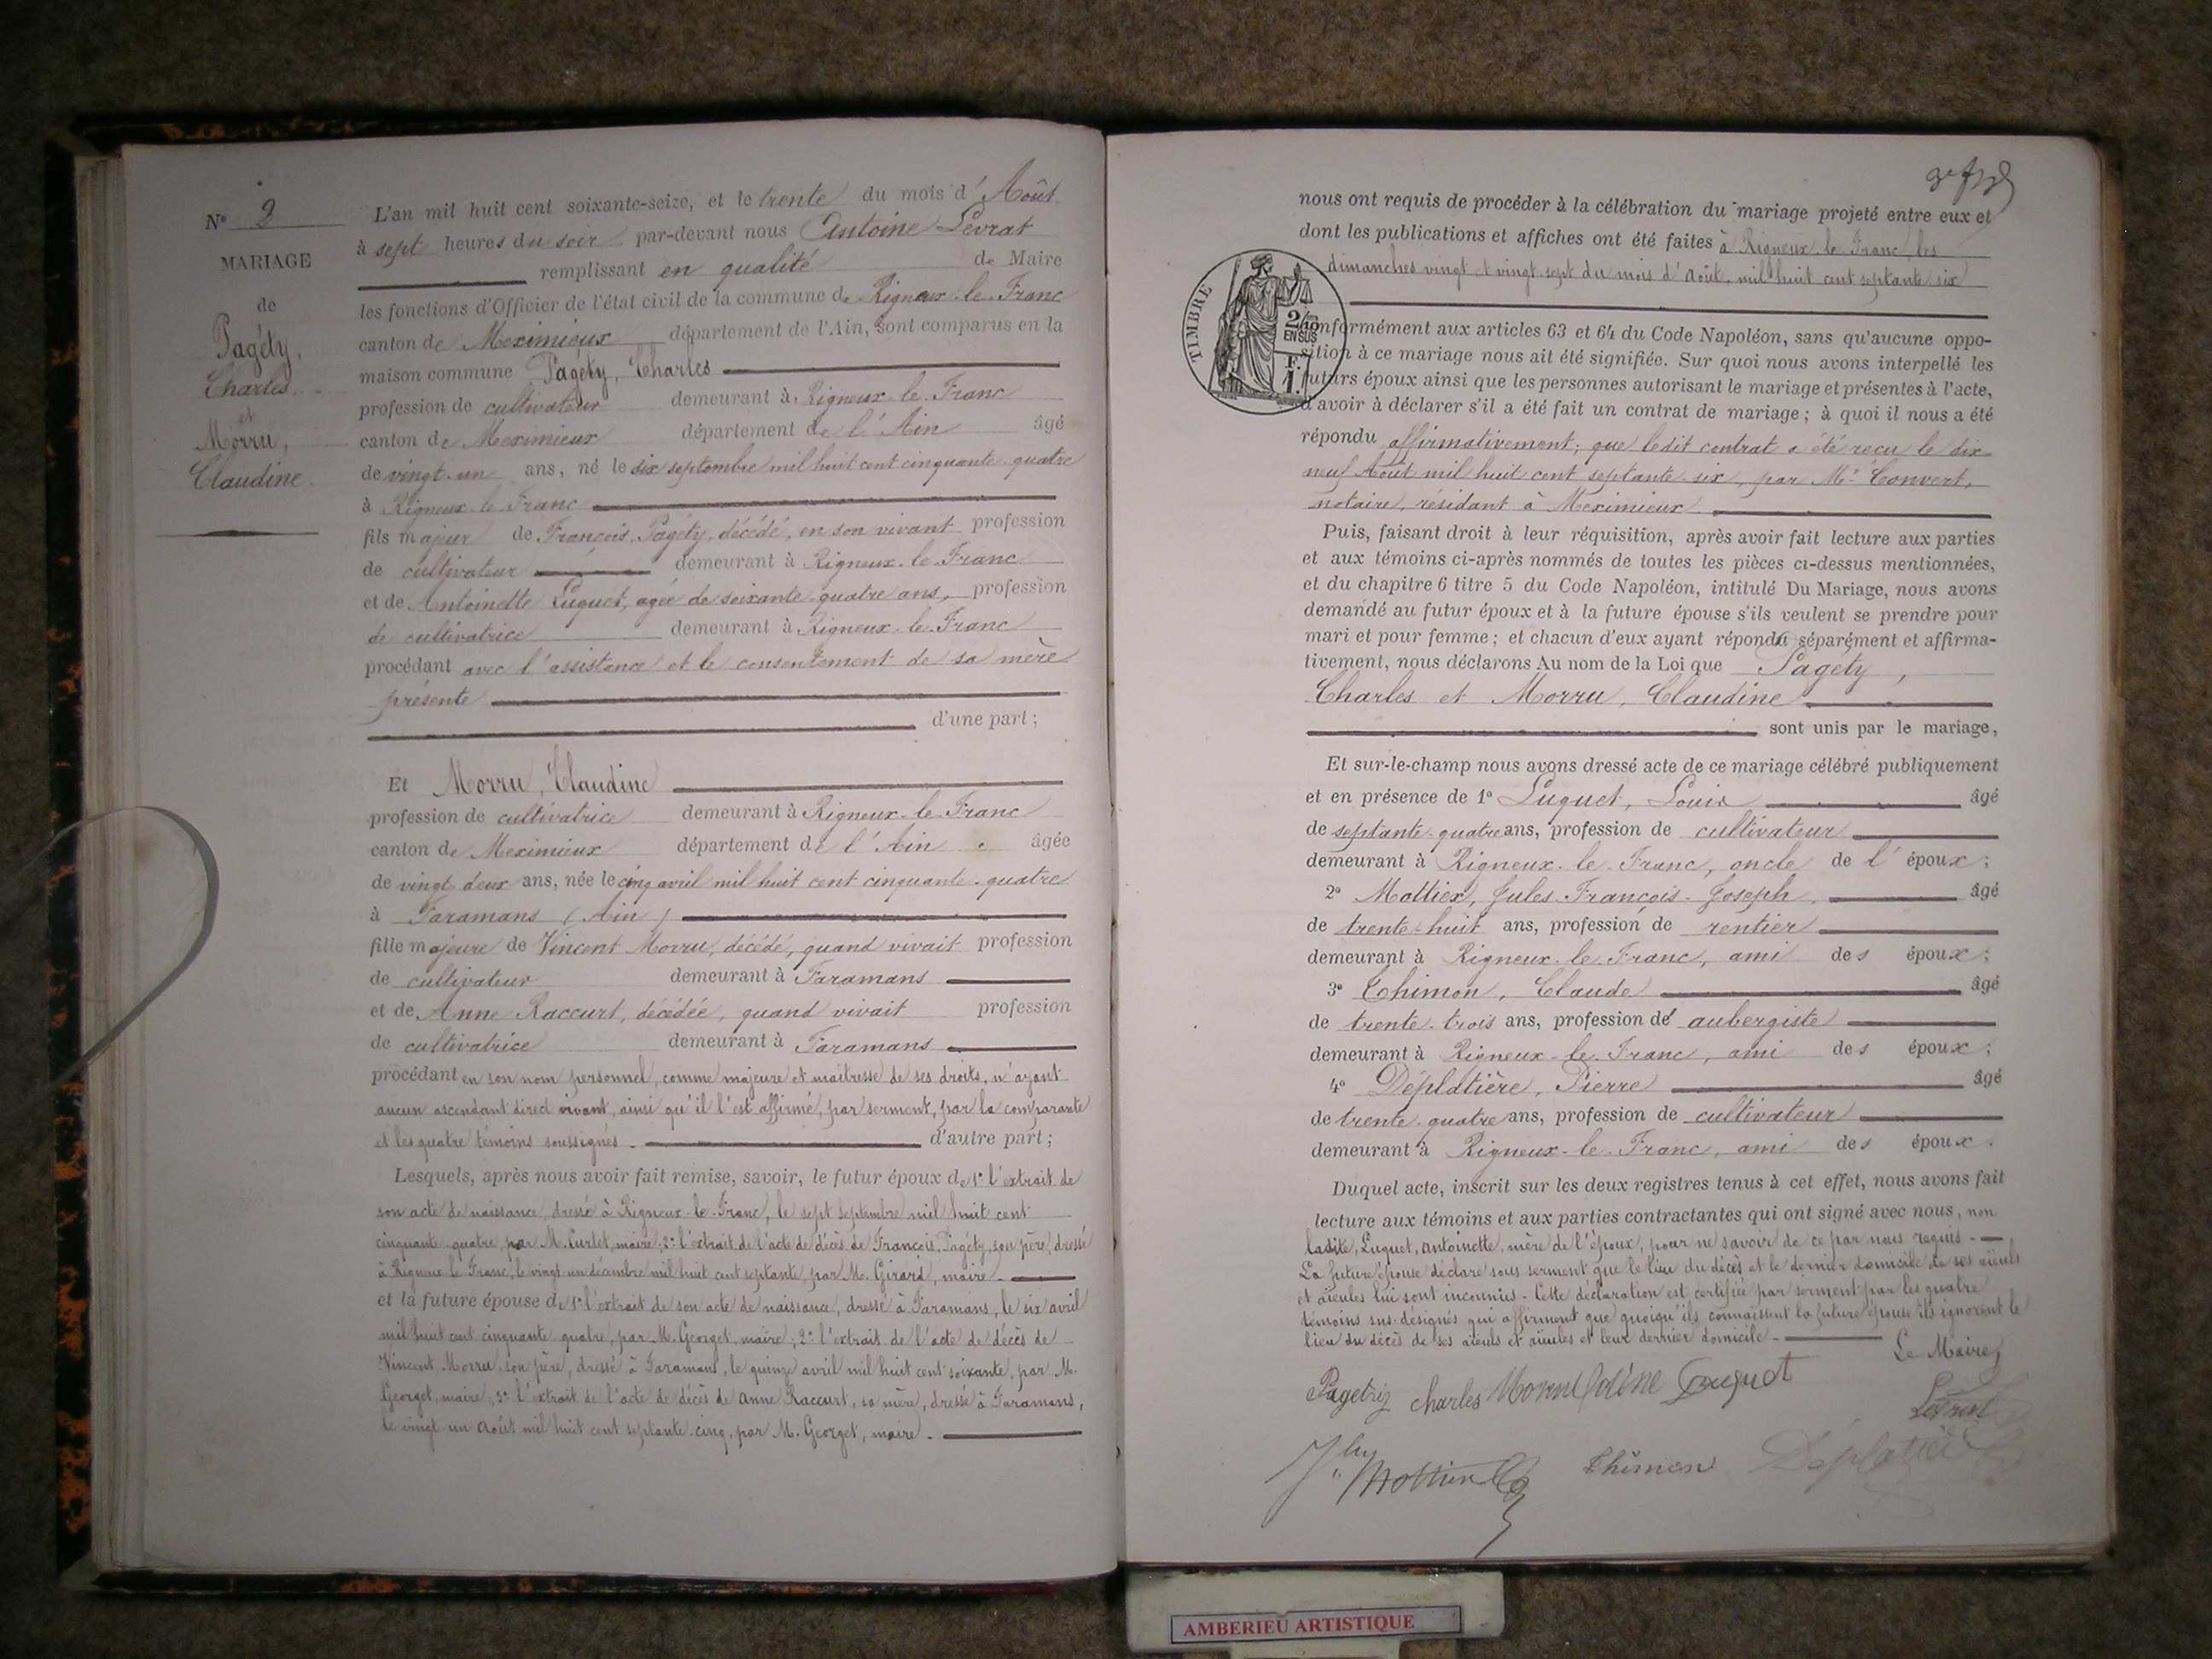 N° 2
MARIAGE
de
Pagéty,
Charles
et
Morru,
Claudine.
L'an mil huit cent soixante-seize, et le trente du mois d'Août
à sept heures du soir par-devant nous Antoine Levrat
remplissant en qualité de Maire
les fonctions d'Officier de l'état civil de la commune de Rigneux-le-Franc
canton de Meximieux département de l'Ain, sont comparus en la
maison commune Pagéty, Charles
profession de cultivateur demeurant à Rigneux-le-Franc
canton de Meximieux département de l'Ain âgé
de vingt-un ans, né le six septembre mil huit cent cinquante-quatre
à Rigneux-le-Franc
fils majeur de François Pagéty, décédé, en son vivant profession
de cultivateur demeurant à Rigneux-le-Franc
et de Antoinette Luquet, agée de soixante-quatre ans, profession
de cultivatrice demeurant à Rigneux-le-Franc
procédant avec l'assistance et le consentement de sa mère
présente
d'une part;
Et Morru, Claudine
profession de cultivatrice demeurant à Rigneux-le-Franc
canton de Meximieux département de l'Ain âgée
de vingt-deux ans, née le cinq avril mil huit cent cinquante-quatre
à Faramans (Ain)
fille majeure de Vincent Morru, décédé, quand vivait profession
de cultivateur demeurant à Faramans
et de Anne Raccurt, décédée, quand vivait profession
de cultivatrice demeurant à Faramans
procédant en son nom personnel, comme majeure et maîtresse de ses droits, n'ayant
aucun ascendant direct vivant, ainsi qu'il l'est affirmé, par serment, par la comparante
et les quatre témoins soussignés - d'autre part;
Lesquels, après nous avoir fait remise, savoir, le futur époux de 1° l'extrait de
son acte de naissance, dressé à Rigneux-le-Franc, le sept septembre mil huit cent
cinquante-quatre, par M. Curtet, maire; 2° l'extrait de l'acte de décès de François Pagéty, son père, dressé
à Rigneux-le-Franc, le vingt-un décembre mil huit cent septante, par M. Girard, maire -
et la future épouse de 1° l'extrait de son acte de naissance, dressé à Faramans, le six avril
mil huit cent cinquante-quatre, par M. Georget, maire; 2° l'extrait de l'acte de décès de
Vincent Morru, son père, dressé à Faramans, le quinze avril mil huit cent soixante, par M.
Georget, maire; 3° l'extrait de l'acte de décès de Anne Raccurt, sa mère, dressé à Faramans,
le vingt-un août mil huit cent septante-cinq, par M. Georget, maire -
nous ont requis de procéder à la célébration du mariage projeté entre eux et
dont les publications et affiches ont été faites à Rigneux-le-Franc, les
dimanches vingt et vingt-sept du mois d'août, mil huit cent septante-six
TIMBRE
2/10
EN SUS
F.
1.
conformément aux articles 63 et 64 du Code Napoléon, sans qu'aucune oppo-
sition à ce mariage nous ait été signifiée. Sur quoi nous avons interpellé les
futurs époux ainsi que les personnes autorisant le mariage et présentes à l'acte,
d'avoir à déclarer s'il a été fait un contrat de mariage; à quoi il nous a été
répondu affirmativement; que ledit contrat a été reçu le dix-
neuf Août mil huit cent septante-six, par Me Convert,
notaire, résidant à Meximieux
Puis, faisant droit à leur réquisition, après avoir fait lecture aux parties
et aux témoins ci-après nommés de toutes les pièces ci-dessus mentionnées,
et du chapitre 6 titre 5 du Code Napoléon, intitulé Du Mariage, nous avons
demandé au futur époux et à la future épouse s'ils veulent se prendre pour
mari et pour femme; et chacun d'eux ayant répondu séparément et affirma-
tivement, nous déclarons Au nom de la Loi que Pagéty,
Charles et Morru, Claudine
sont unis par le mariage,
Et sur-le-champ nous avons dressé acte de ce mariage célébré publiquement
et en présence de 1° Luquet, Louis âgé
de septante-quatre ans, profession de cultivateur
demeurant à Rigneux-le-Franc, oncle de l'époux;
2° Mottier, Jules-François-Joseph, âgé
de trente-huit ans, profession de rentier
demeurant à Rigneux-le-Franc, ami des époux;
3° Thimon, Claude âgé
de trente-trois ans, profession de aubergiste
demeurant à Rigneux-le-Franc, ami des époux;
4° Déplatière, Pierre âgé
de trente-quatre ans, profession de cultivateur
demeurant à Rigneux-le-Franc, ami des époux.
Duquel acte, inscrit sur les deux registres tenus à cet effet, nous avons fait
lecture aux témoins et aux parties contractantes qui ont signé avec nous, non
ladite, Luquet, Antoinette, mère de l'époux, pour ne savoir de ce par nous requis -
La future épouse déclare sous serment que le lieu du décès et le dernier domicile de ses aïeuls
et aïeules lui sont inconnus - Cette déclaration est certifiée par serment par les quatre
témoins sus-désignés qui affirment que quoiqu'ils connaissent la future épouse ils ignorent le
lieu du décès de ses aïeuls et aïeules et leur dernier domicile -
Le Maire,
Charles Luquet
Levrat
Mottier Thimon Déplatière
AMBERIEU ARTISTIQUE